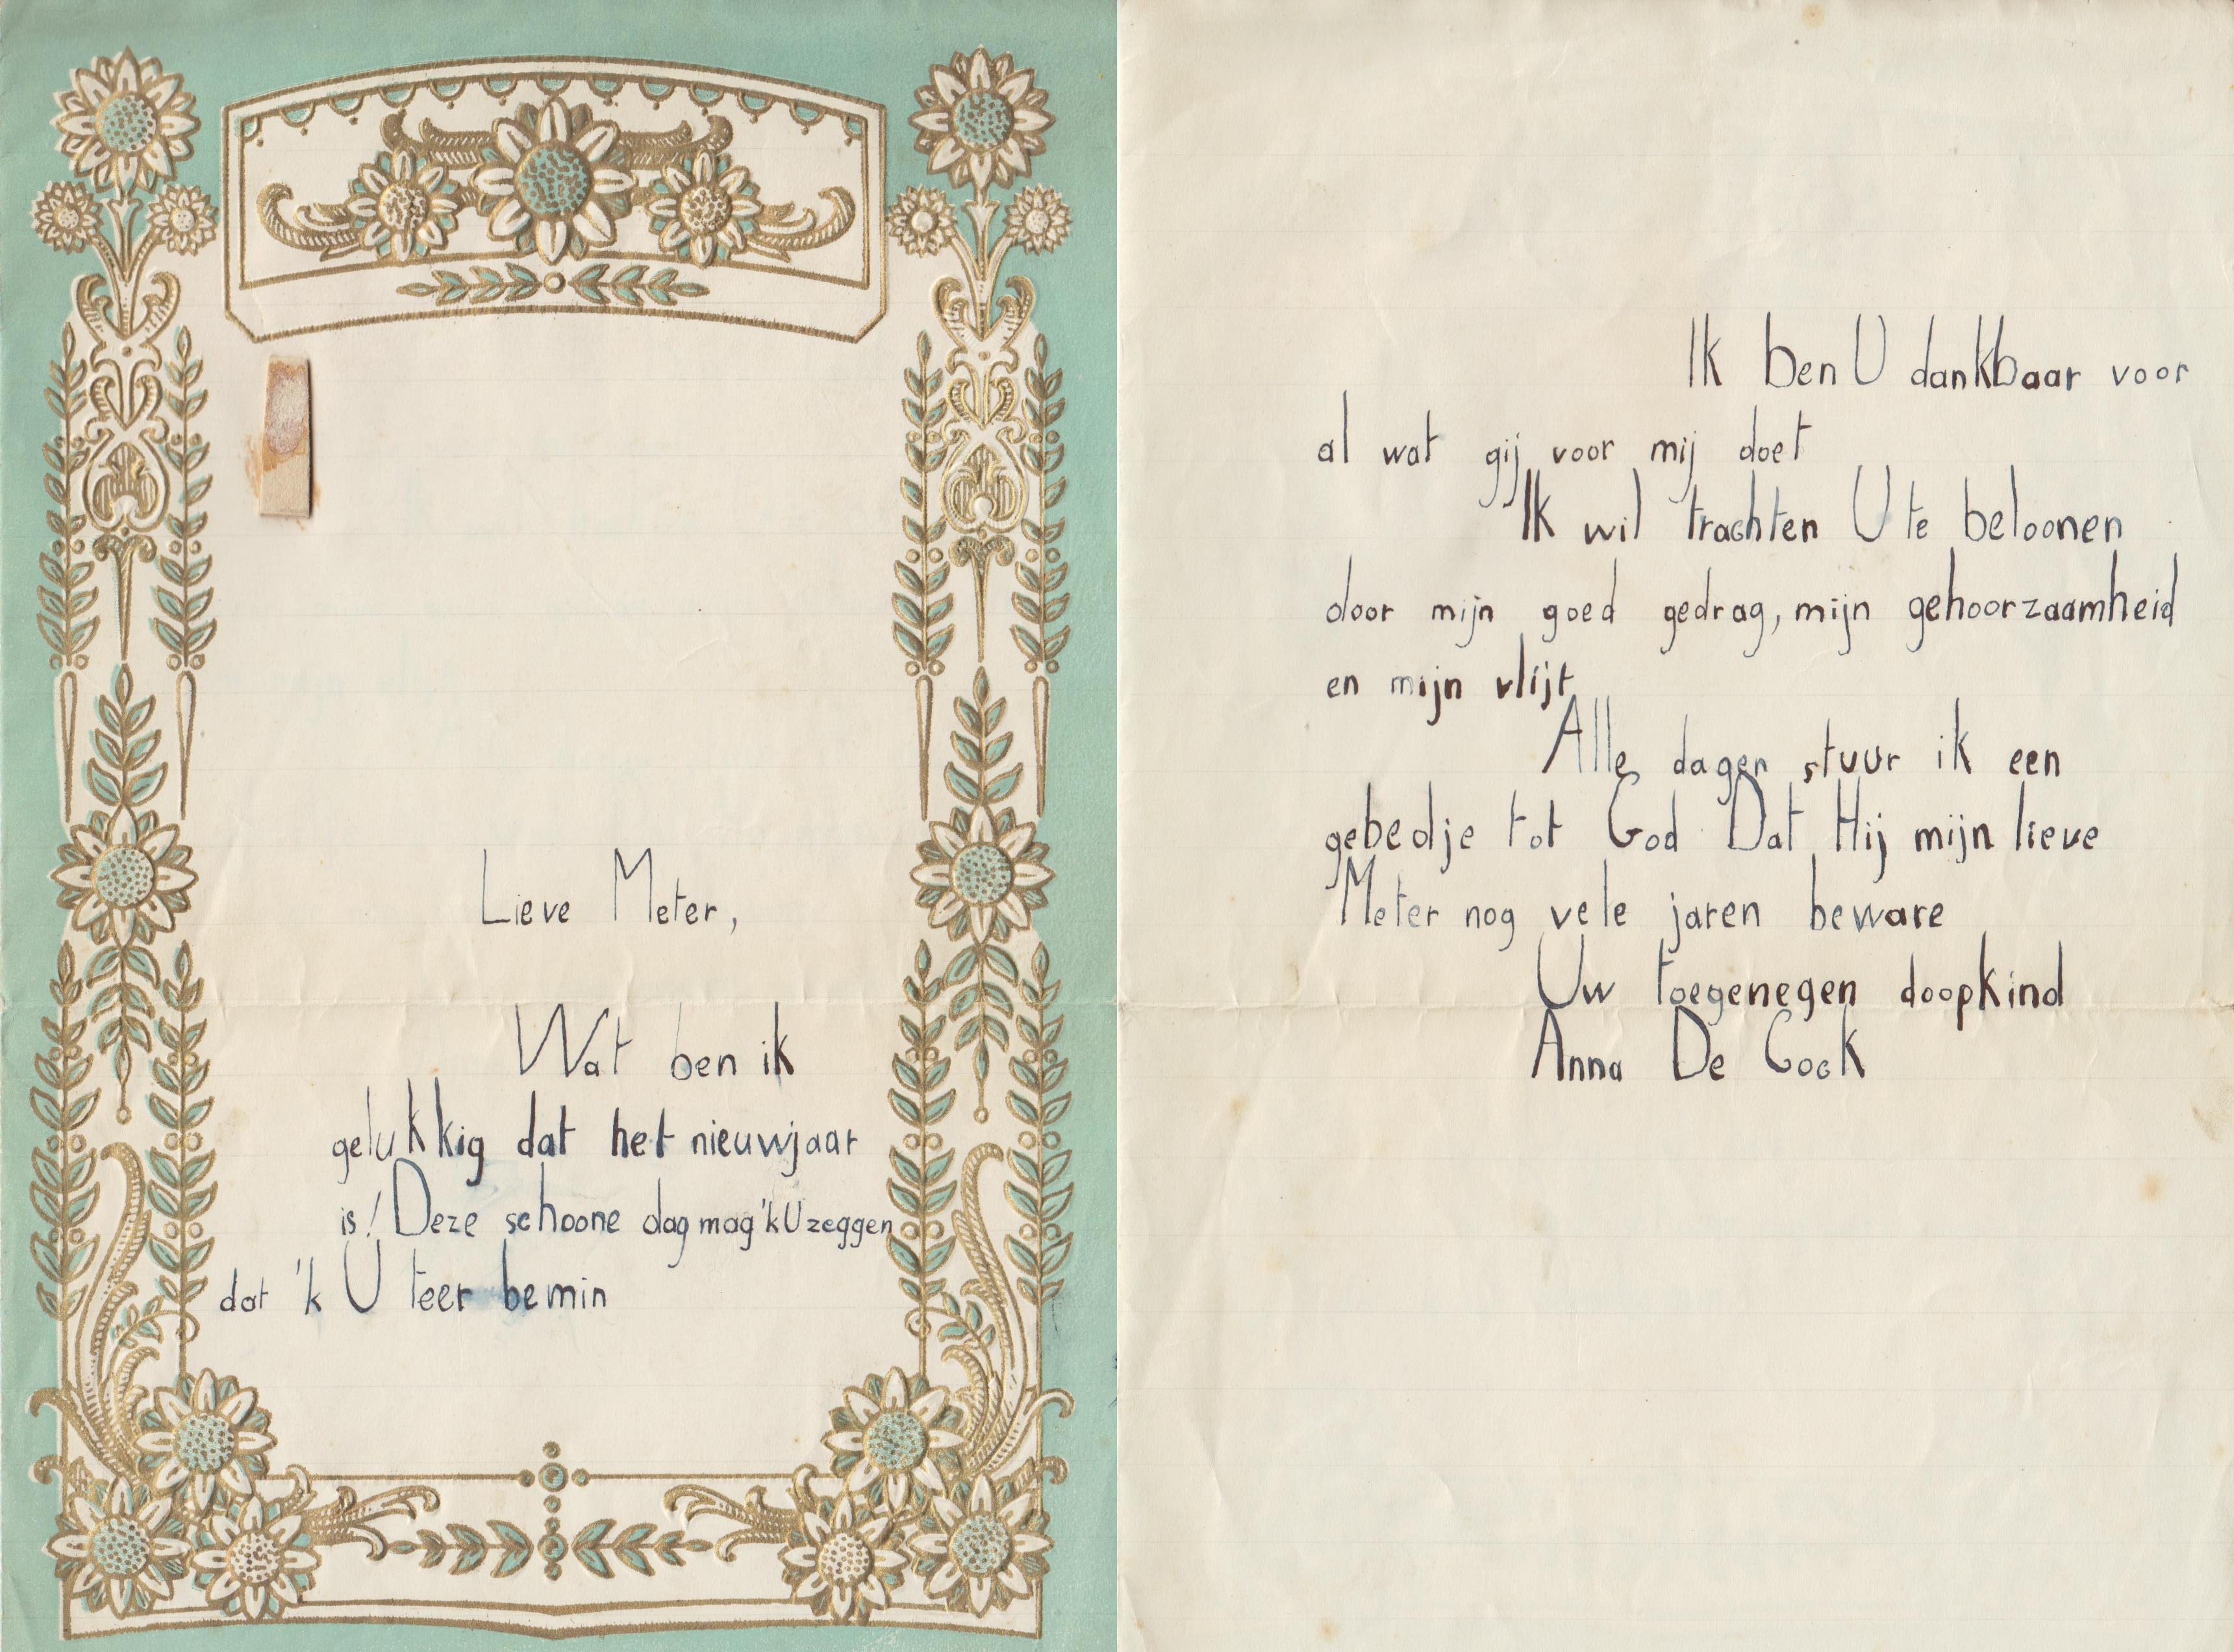 Lieve Meter,
Wat ben ik
gelukkig dat het nieuwjaar
is! Deze schoone dag mag 'k U zeggen
dat 'k U teer bemin
Ik ben U dankbaar voor
al wat gij voor mij doet
Ik wil trachten U te beloonen
door mijn goed gedrag, mijn gehoorzaamheid
en mijn vlijt
Alle dagen stuur ik een
gebedje tot God Dat Hij mijn lieve
Meter nog vele jaren beware
Uw toegenegen doopkind
Anna De Cock